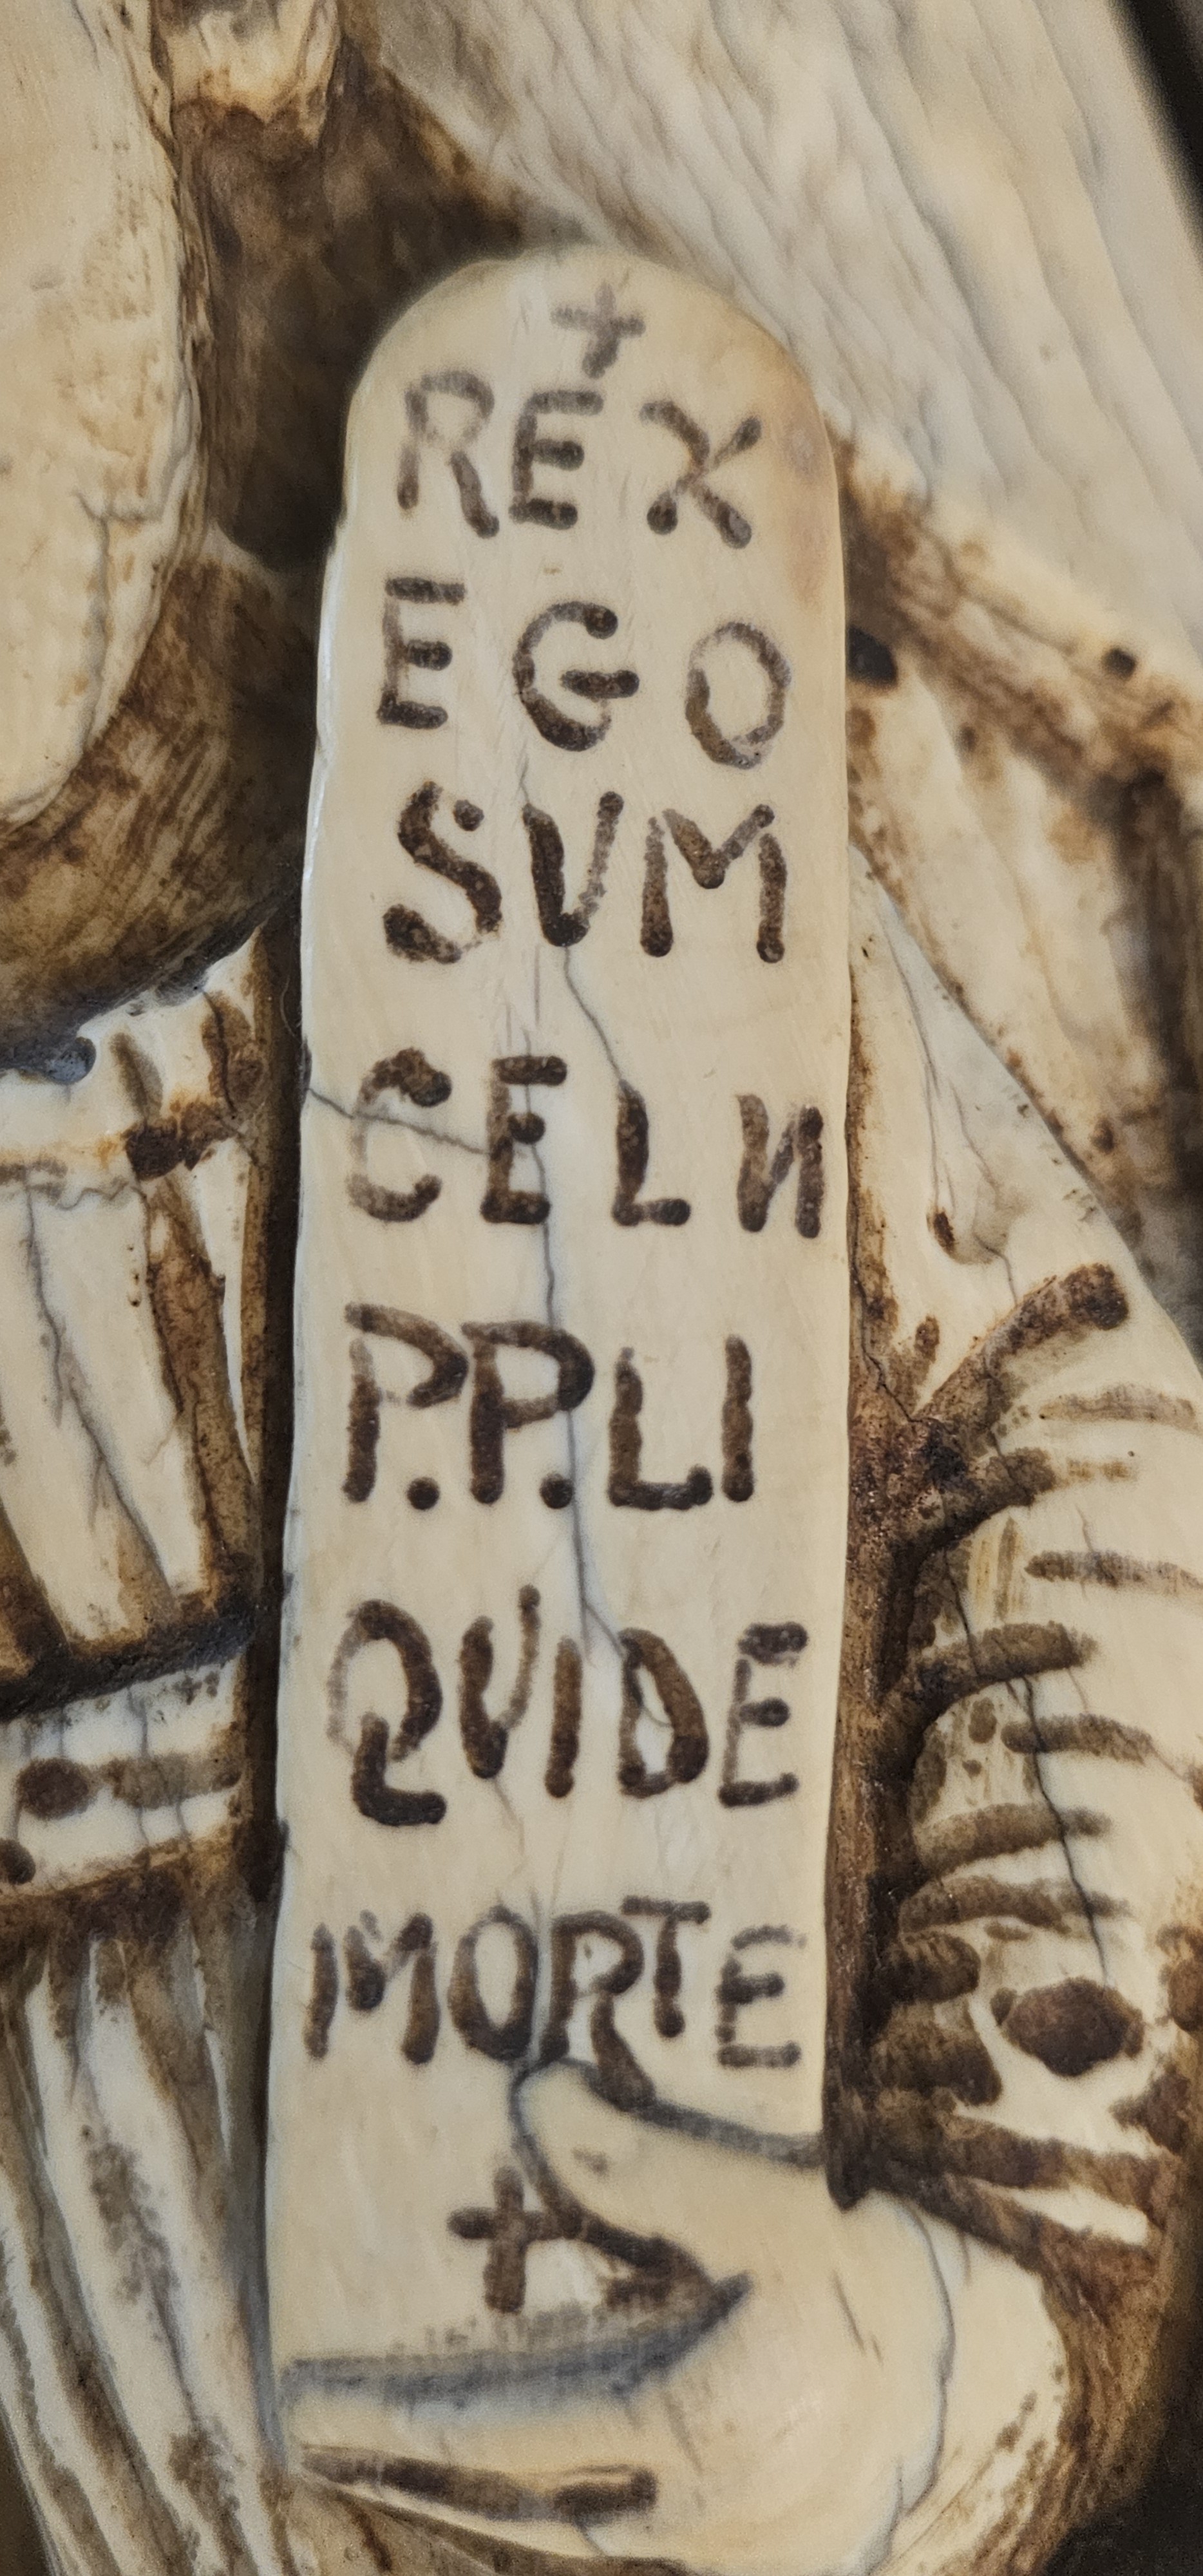 +
REX
EGO
SVM
CELИ
P.P.LI
QVIDE
MORTE
+